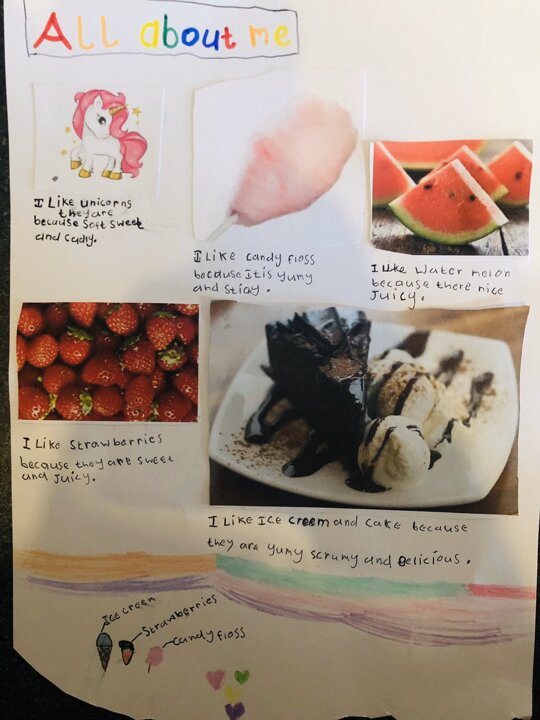 All about me
I Like unicorns
they are
because soft sweet
and cudly.
I Like candy floss
because It is yumy
and sticy.
I Like Water melon
because there nice
Juicy.
I Like Strawberries
because they are sweet
and Juicy.
I Like Ice creem and cake because
they are yumy scrumy and delicious.
Ice creen
Strawberries
candy floss